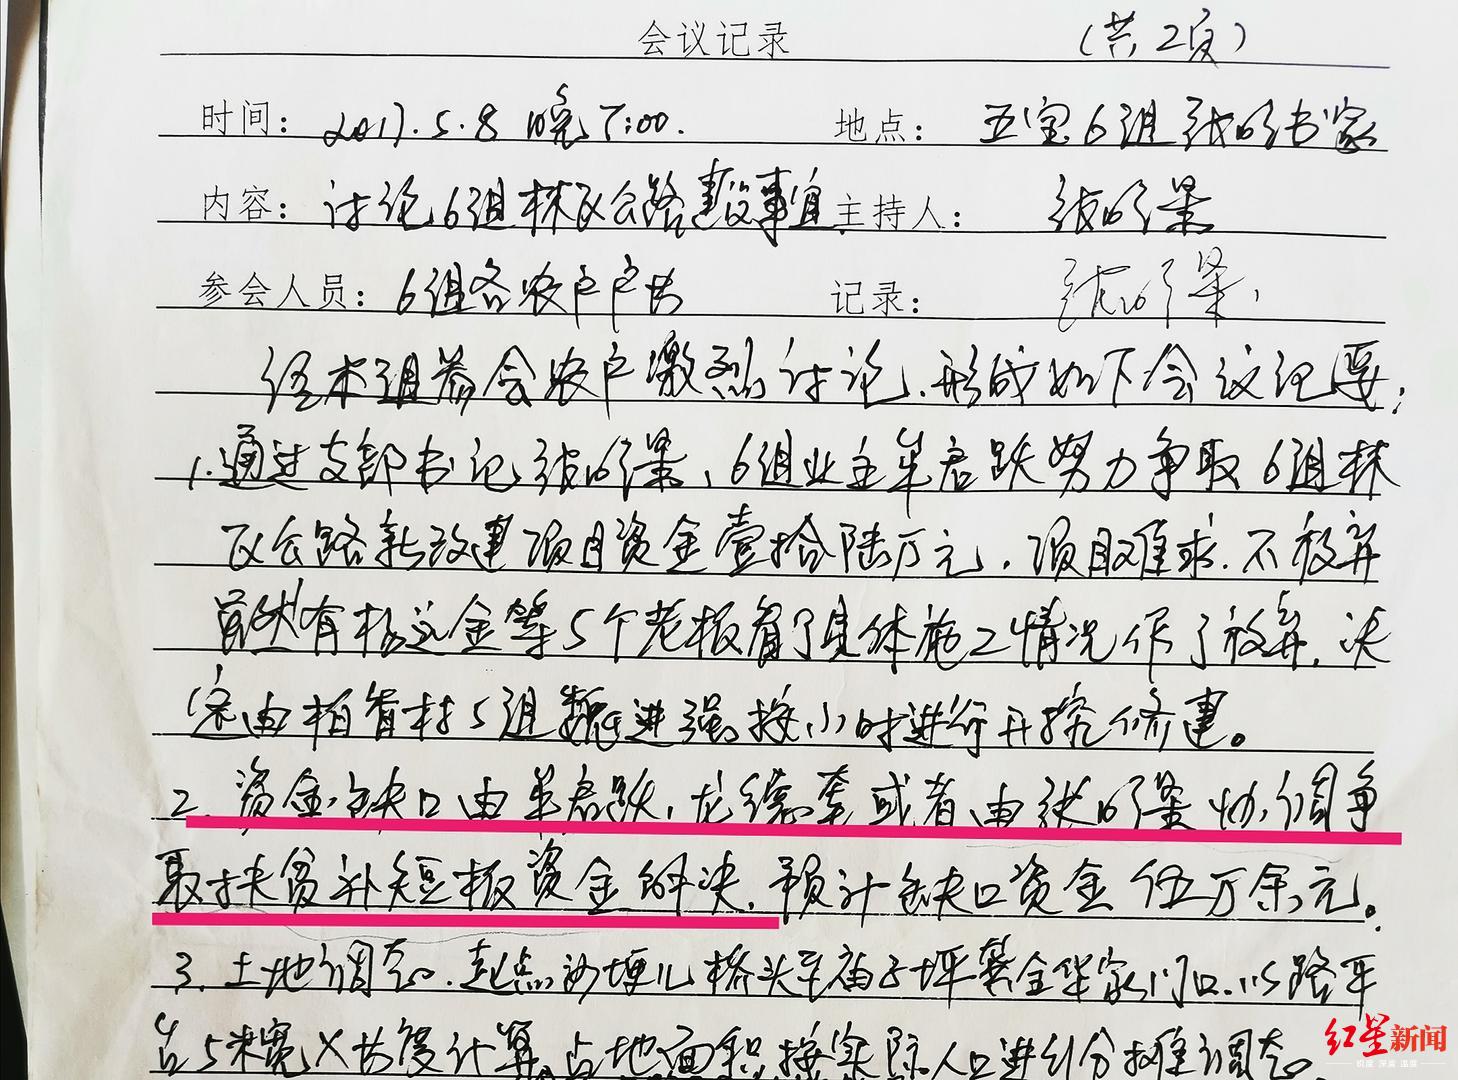 会议记录 （共2页）
时间：2017.5.8 晚7:00. 地点：五宝6组张明书家
内容：讨论6组林区公路建设事宜 主持人：张明渠
参会人员：6组各农户户长 记录：张明渠
经本组参会农户激烈讨论、形成如下会议记要：
1.通过支部书记张明渠、6组业主牟君跃努力争取6组林
区公路新改建项目资金壹拾陆万元，项目难求.不放弃
虽然有杨运金等5个老板看了具体施工情况作了放弃.决
定由柏香村5组魏进强按小时进行开挖修建。
2、资金缺口由牟君跃、龙德奎或者由张明渠协调争
取扶贫补短板资金解决.预计缺口资金伍万余元。
3、土地调整.起点沙埂儿桥头至庙子坪 金华家门口.以路平
台5米宽×长度计算.占地面积按实际人口进行分摊调整。
红星新闻